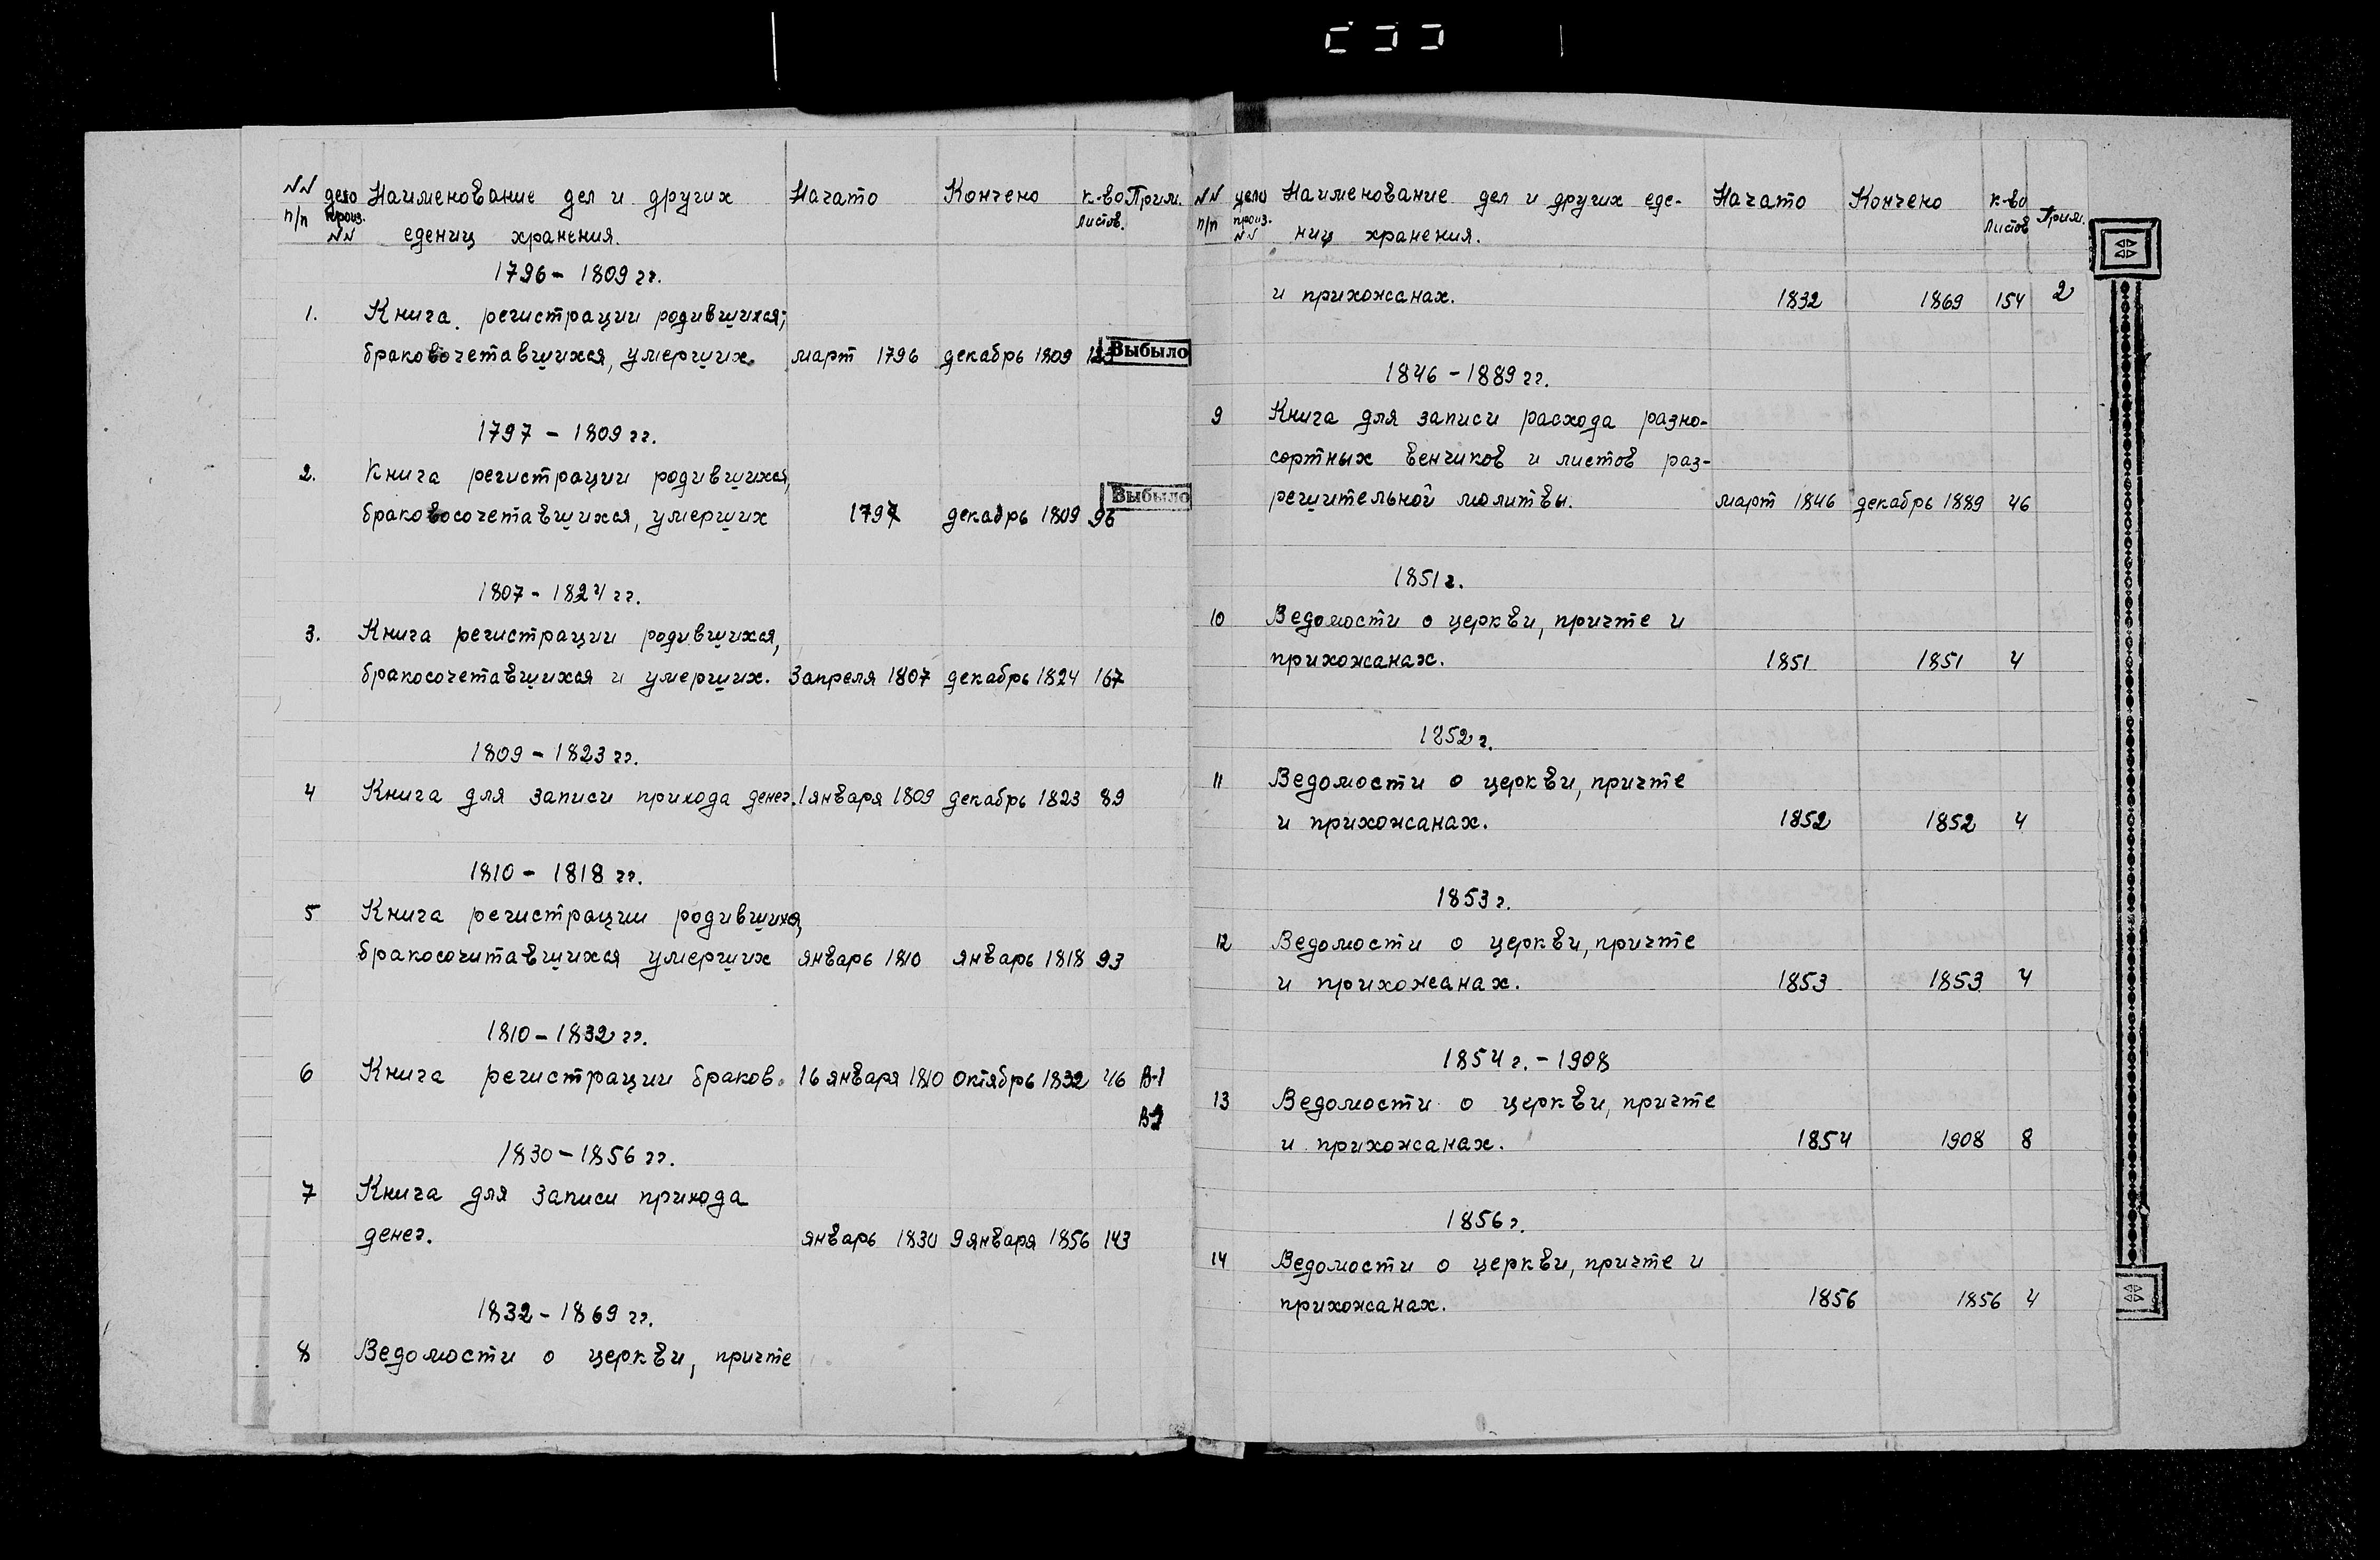 NN дело Наименование дел и других Начато Кончено к-во Прим.
п/п произ. NN едениц хранения. листов.
1796 - 1809 гг.
1. Книга регистрации родившихся;
браковочетавшихся, умерших. март 1796 декабрь 1809 Выбыло
1797 - 1809 гг.
2. Книга регистрации родившихся,
браковосочетавшихся, умерших 1797 декабрь 1809 96 Выбыло
1807 - 1824 гг.
3. Книга регистрации родившихся,
бракосочетавшихся и умерших. 3 апреля 1807 декабрь 1824 167
1809 - 1823 гг.
4 Книга для записи прихода денег. 1 января 1809 декабрь 1823 89
1810 - 1818 гг.
5 Книга регистрации родившихся,
бракосочитавшихся умерших январь 1810 январь 1818 93
1810 - 1832 гг.
6 Книга регистрации браков. 16 января 1810 октябрь 1832 46 В-1
1830 - 1856 гг.
7 Книга для записи прихода
денег. январь 1830 9 января 1856 143
1832 - 1869 гг.
8 Ведомости о церкви, причте
NN дело Наименование дел и других еде- Начато Кончено к-во Прим.
п/п произ. NN ниц хранения. листов
и прихожанах. 1832 1869 154 2
1846 - 1889 гг.
9 Книга для записи расхода разно-
сортных венчиков и листов раз-
решительной молитвы. март 1846 декабрь 1889 46
1851 г.
10 Ведомости о церкви, причте и
прихожанах. 1851 1851 4
1852 г.
11 Ведомости о церкви, причте
и прихожанах. 1852 1852 4
1853 г.
12 Ведомости о церкви, причте
и прихожанах. 1853 1853 4
1854 г. - 1908
13 Ведомости о церкви, причте
и прихожанах. 1854 1908 8
1856 г.
14 Ведомости о церкви, причте и
прихожанах. 1856 1856 4